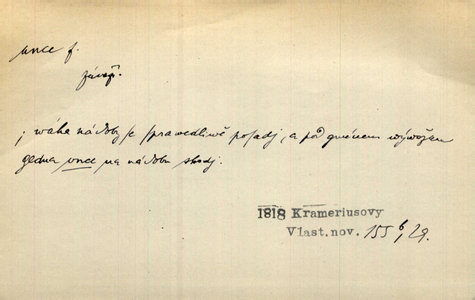 unce f.
závaž.
; wáha nádoby se sprawedliwě posadj, a pod gménem wýwožem
gedna unce na nádobu shodj.
1818 Krameriusovy
Vlast.nov. 155 b/29.